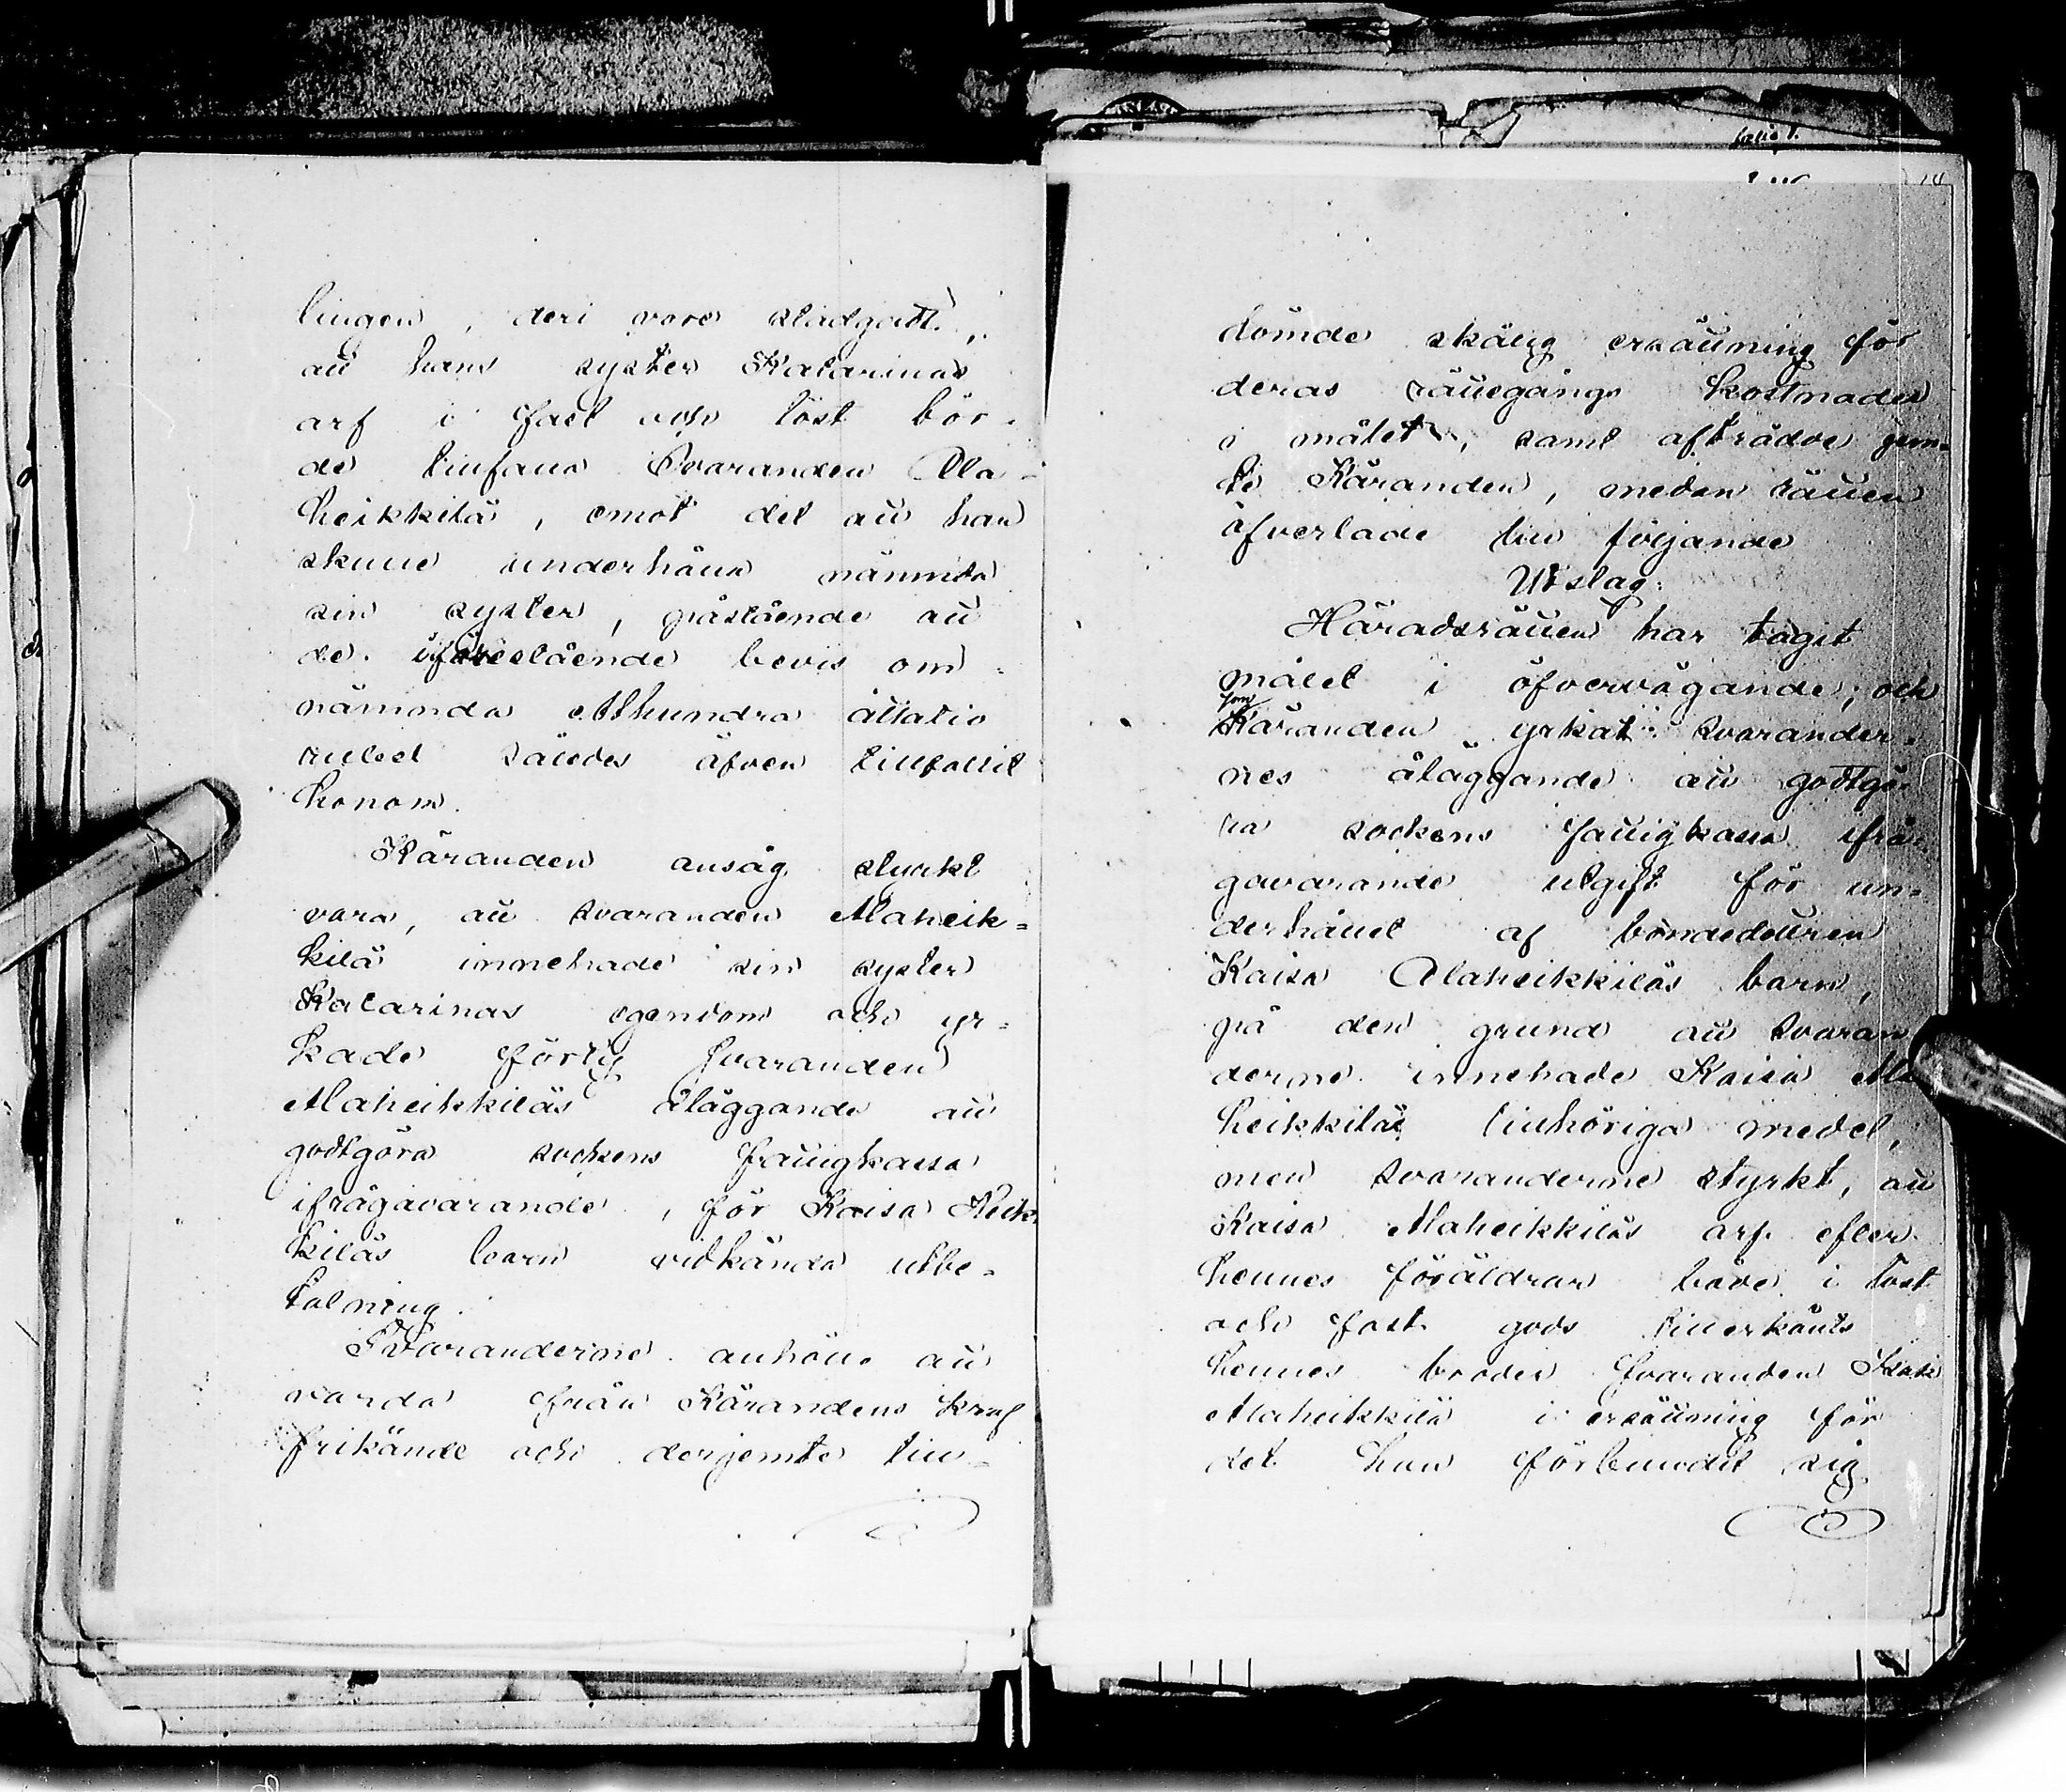 lingen, deri vore stadgadt,
att hans syster Katarinas
arf i fast och löst bör-
de tillfalla Svaranden Ala-
heikkilä, emot det att han
skulle underhålla nämnda
sin syster, påstående att
de i företeende bevis om-
nämnda etthundra åttatio
rubel således äfven tillfallit
honom.
Käranden ansåg styrkt
vara, att svaranden Alaheik-
kilä innehade sin syster
Katarinas egendom och yr-
kade förty svaranden
Alaheikkiläs åläggande att
godtgöra sockens fattigkassa
ifrågavarande, för Kaisa Heik-
kiläs barn vidkända utbe-
talning.
Svaranderne anhöllo att
varda från Kärandens kraf
frikände och derjemte till-
dömde skälig ersättning för
deras rättegångs kostnader
i målet, samt afträdde jem-
te Käranden, medan rätten
öfverlade till följande
Utslag:
Häradsrätten har tagit
målet i öfvervägande; och
som
Käranden yrkat svarander-
nes åläggande att godtgö-
ra sockens fattigkassa ifrå-
gavarande utgift för un-
derhållet af bondedottren
Kaisa Alaheikkiläs barn,
på den grund att svaran
derne innehade Kaisa Ala
heikkiläs tillhöriga medel,
men svaranderne styrkt, att
Kaisa Alaheikkiläs arf efter
hennes föräldrar både i löst
och fast gods tillerkänts
hennes broder svaranden
Alaheikkilä i ersättning för
det han förbundit sig